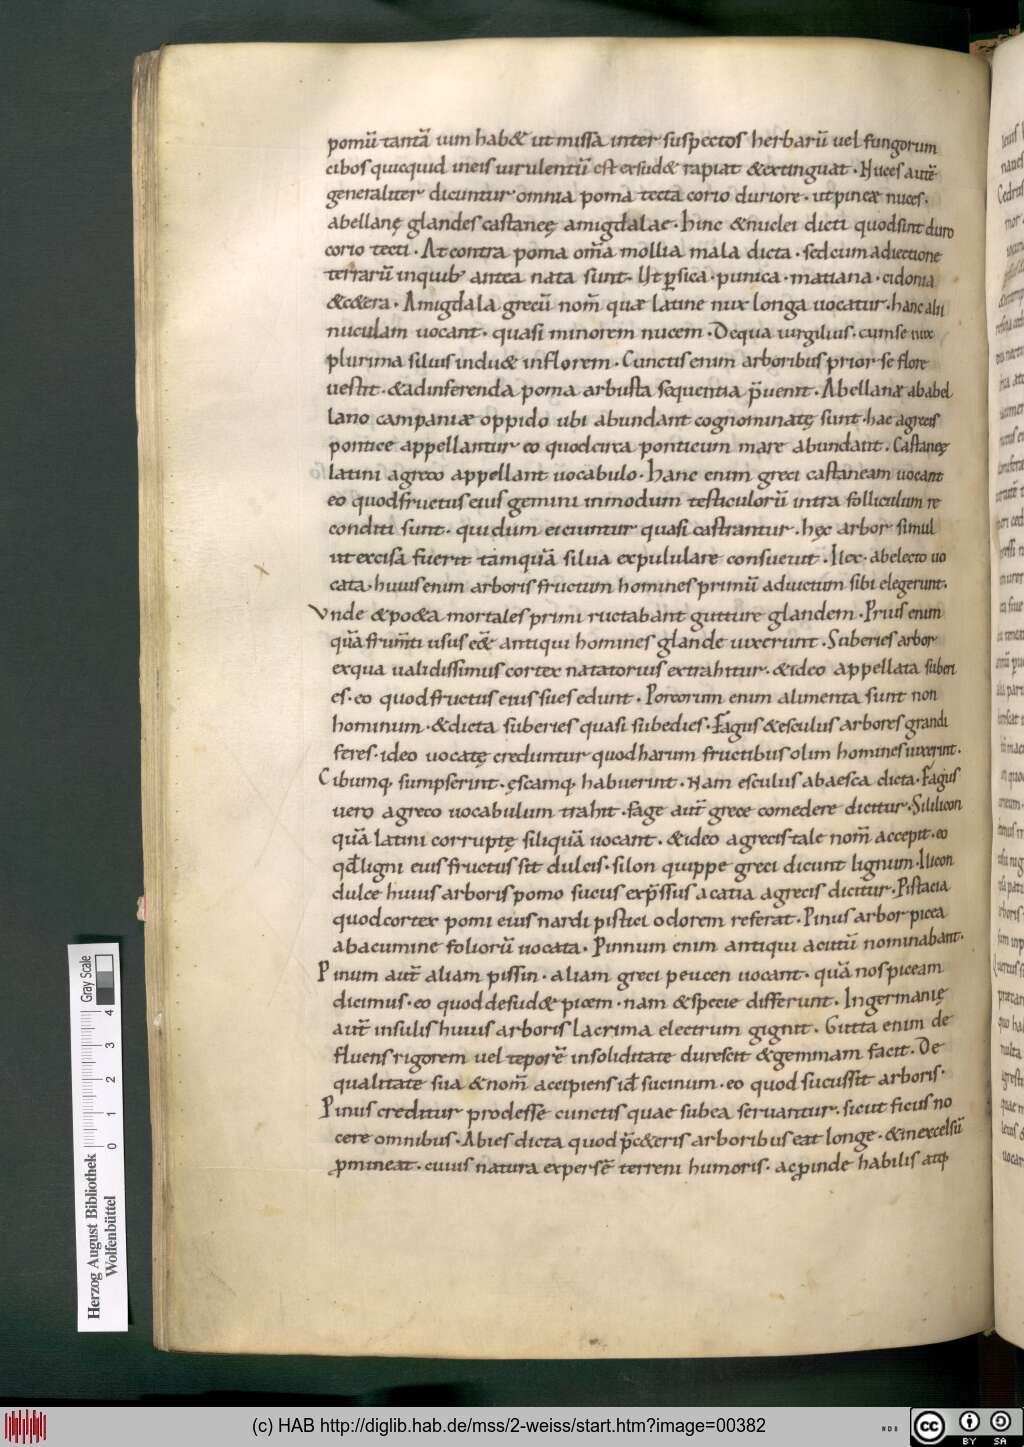 pomū tantā uim hab& ut missa inter suspectos herbarū uel fungorum
cibos quicquid ineis uirulentū est exsud& rapiat &extinguat. Nuces autē
generaliter dicuntur omnia poma tecta corio duriore. ut pineæ nuces.
abellanę glandes castaneę amigdalae. hinc &nuclei dicti quodsint duro
corio tecti. At contra poma om̄a mollia mala dicta. sedcum adiectione
terrarū inquib; antea nata sunt. Ut ꝑsica. punica. matiana. cidonia
&c&era. Amigdala grecū nom̄ quæ latine nux longa uocatur. hanc alii
nuculam uocant. quasi minorem nucem. Dequa uirgilius. cumse nux
plurima siluis indu& inflorem. Cunctis enim arboribus prior se flore
uestit. &adinferenda poma arbusta sequentia p̄uenit. Abellanæ ab abel
lano campaniæ oppido ubi abundant cognominatę sunt. hae agrecis
pontice appellantur eo quodcirca ponticum mare abundant. Castaneę
latini agreco appellant uocabulo. hanc enim greci castaneam uocant
eo quodfructus eius gemini inmodum testiculorū intra folliculum re
conditi sunt. qui dum eiciuntur quasi castrantur. hęc arbor simul
ut excisa fuerit tamquā silua expululare consueuit. Ilex. abelecto uo
cata. huius enim arboris fructum homines primū aduictum sibi elegerunt.
Vnde &po&a mortales primi ructabant gutture glandem. Prius enim
quā frum̄ti usus eēt antiqui homines glande uixerunt. Suberies arbor
exqua ualidissimus cortex natatorius extrahitur. &ideo appellata suberi
es. eo quod fructus eius sues edunt. Porcorum enim alimenta sunt non
hominum. &dicta suberies quasi subedies. Fagus &esculus arbores grandi
feres. ideo uocatę creduntur quod harum fructibus olim homines uixerint.
Cibumq; sumpserint. ęscamq; habuerint. Nam esculus abaesca dicta. Fagus
uero agreco uocabulum trahit. fage aut̄ grece comedere dicitur. Sililicon
quā Latini corruptę siliquā uocant. &ideo agrecis tale nom̄ accepit. eo
qđ ligni eius fructus sit dulcis. silon quippe greci dicunt lignum. Ilicon
dulce huius arboris pomo sucus exp̄ssus acatia agrecis dicitur. Pistacia
quod cortex pomi eius nardi pistici odorem referat. Pinus arbor picea
abacumine foliorū uocata. Pinnum enim antiqui acutū nominabant.
Pinum aut̄ aliam pissin. aliam greci peucen uocant. quā nos piceam
dicimus. eo quod desud& picem. nam &specie differunt. Ingermanię
aut̄ insulis huius arboris lacrima electrum gignit. Gutta enim de
fluens rigorem uel teporē insoliditate durescit &gemmam facit. De
qualitate sua &nom̄ accipiens id̄ sucinum. eo quod sucus sit arboris.
Pinus creditur prodesse cunctis quae subea seruantur. sicut ficus no
cere omnibus. Abies dicta quod p̄c&eris arboribus eat longe. &inexcelsū
ꝓmineat. cuius natura expers ē terreni humoris. ac ꝓinde habilis atq;
Herzog August Bibliothek
Wolfenbüttel
0 1 2 3 4 Gray Scale
(c) HAB http://diglib.hab.de/mss/2-weiss/start.htm?image=00382
cc BY SA